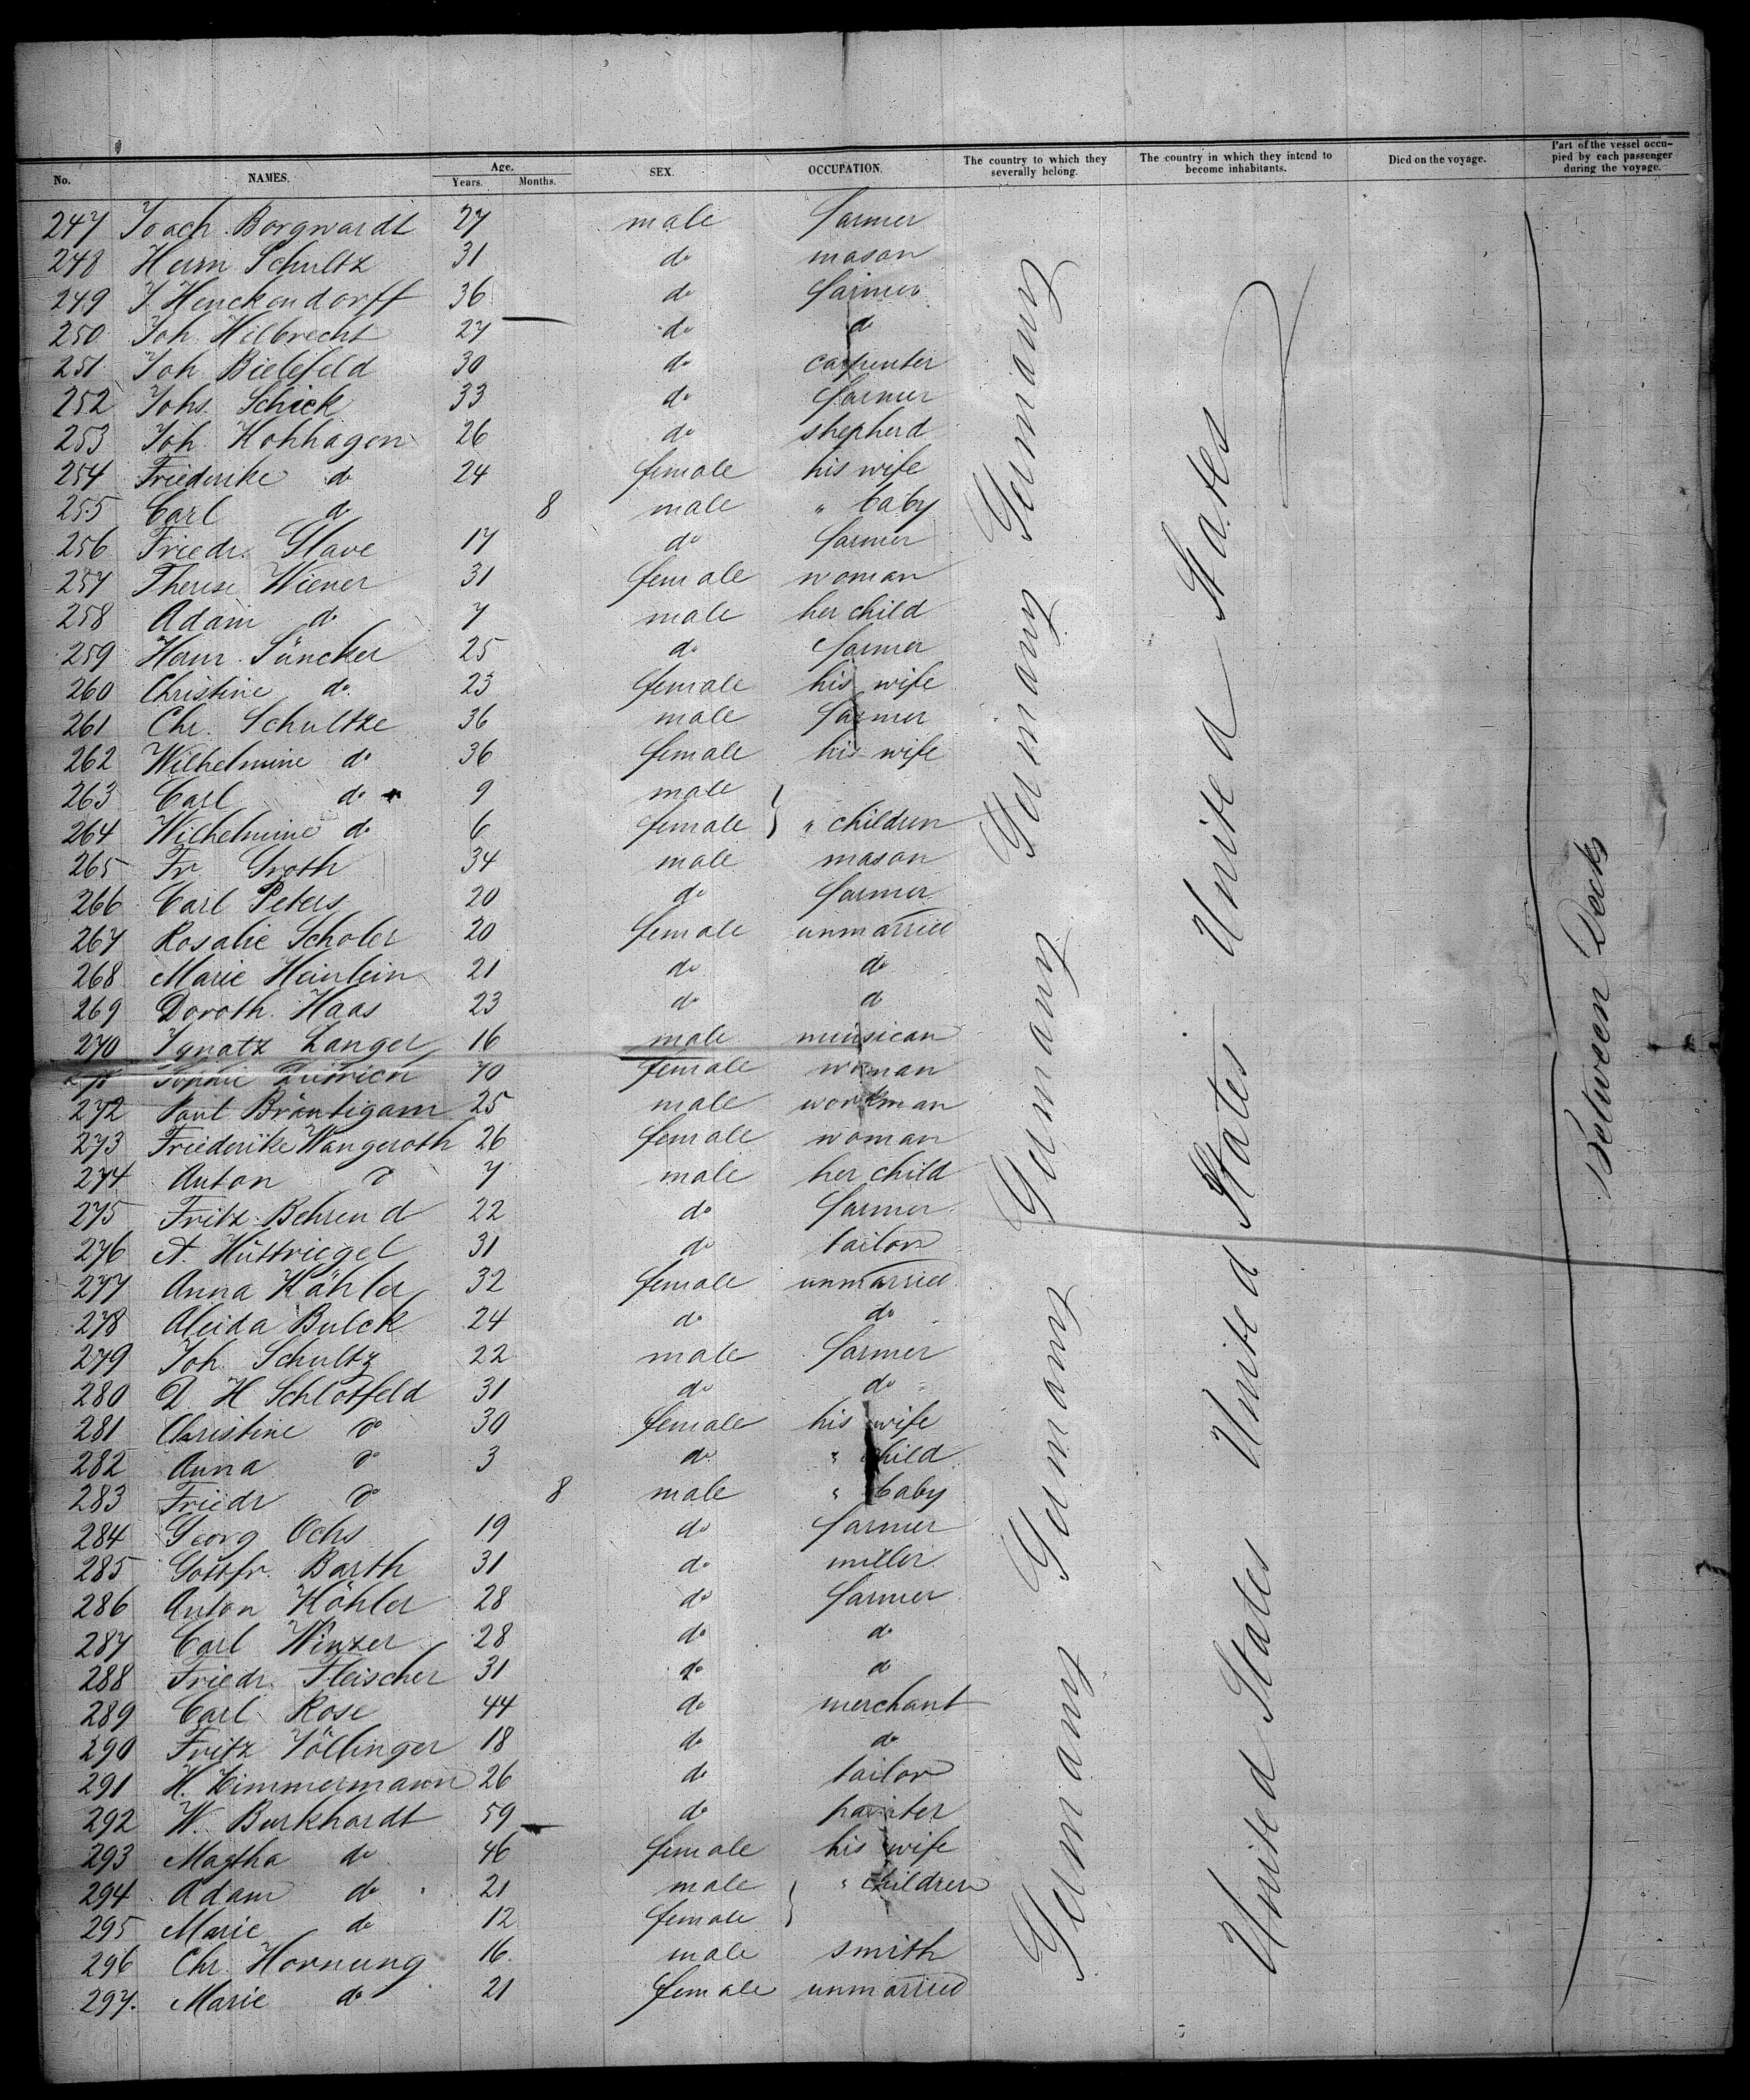 No. NAMES. Age. Years. Months. SEX. OCCUPATION. The country to which they severally belong. The country in which they intend to become inhabitants. Died on the voyage. Part of the vessel occupied by each passenger during the voyage.
247 Joach. Borgwardt 27 male farmer
248 Herm Schultz 31 do mason
249 J. Henckendorff 36 do farmer
250 Joh. Hilbrecht 27 do do
251 Joh. Bielefeld 30 do carpenter
252 Johs. Schick 33 do farmer
253 Joh. Hohhagen 26 do shepherd
254 Friederike do 24 female his wife
255 Carl do 8 male " baby
256 Friedr. Glave 17 do farmer
257 Therese Wiener 31 female woman
258 Adam do 7 male her child
259 Herm. Süncker 25 do farmer
260 Christine do 23 female his wife
261 Chr. Schultze 36 male farmer
262 Wilhelmine do 36 female his wife
263 Carl do 9 male
264 Wilhelmine do 6 female " children
265 Fr Groth 34 male mason
266 Carl Peters 20 do farmer
267 Rosalie Scholer 20 female unmarried
268 Marie Heinlein 21 do do
269 Doroth. Haas 23 do do
270 Ignatz Langer 16 male musican
Sophie 70 female woman
272 Paul Bräutigam 25 male workman
273 Friederike Wangeroth 26 female woman
274 Anton do 7 male her child
275 Fritz Behrend 22 do farmer
276 A. Hüttriegel 31 do tailor
277 Anna Kähler 32 female unmarried
278 Aleida Bulck 24 do do
279 Joh. Schultz 22 male farmer
280 D. H Schlotfeld 31 do do
281 Christine do 30 female his wife
282 Anna do 3 do " child
283 Friedr do 8 male " baby
284 Georg Ochs 19 do farmer
285 Gottfr. Barth 31 do miller
286 Anton Köhler 28 do farmer
287 Carl Winzer 28 do do
288 Friedr. Fleischer 31 do do
289 Carl Rose 44 do merchant
290 Fritz Völlinger 18 do do
291 H. Zimmermann 26 do tailor
292 W. Burkhardt 59 do painter
293 Magtha do 46 female his wife
294 Adam do 21 male " children
295 Marie do 12 female
296 Chr. Hornung 16 male smith
297. Marie do 21 female unmarried
Germany Germany Germany Germany Germany
United States United States United States
Between Decks